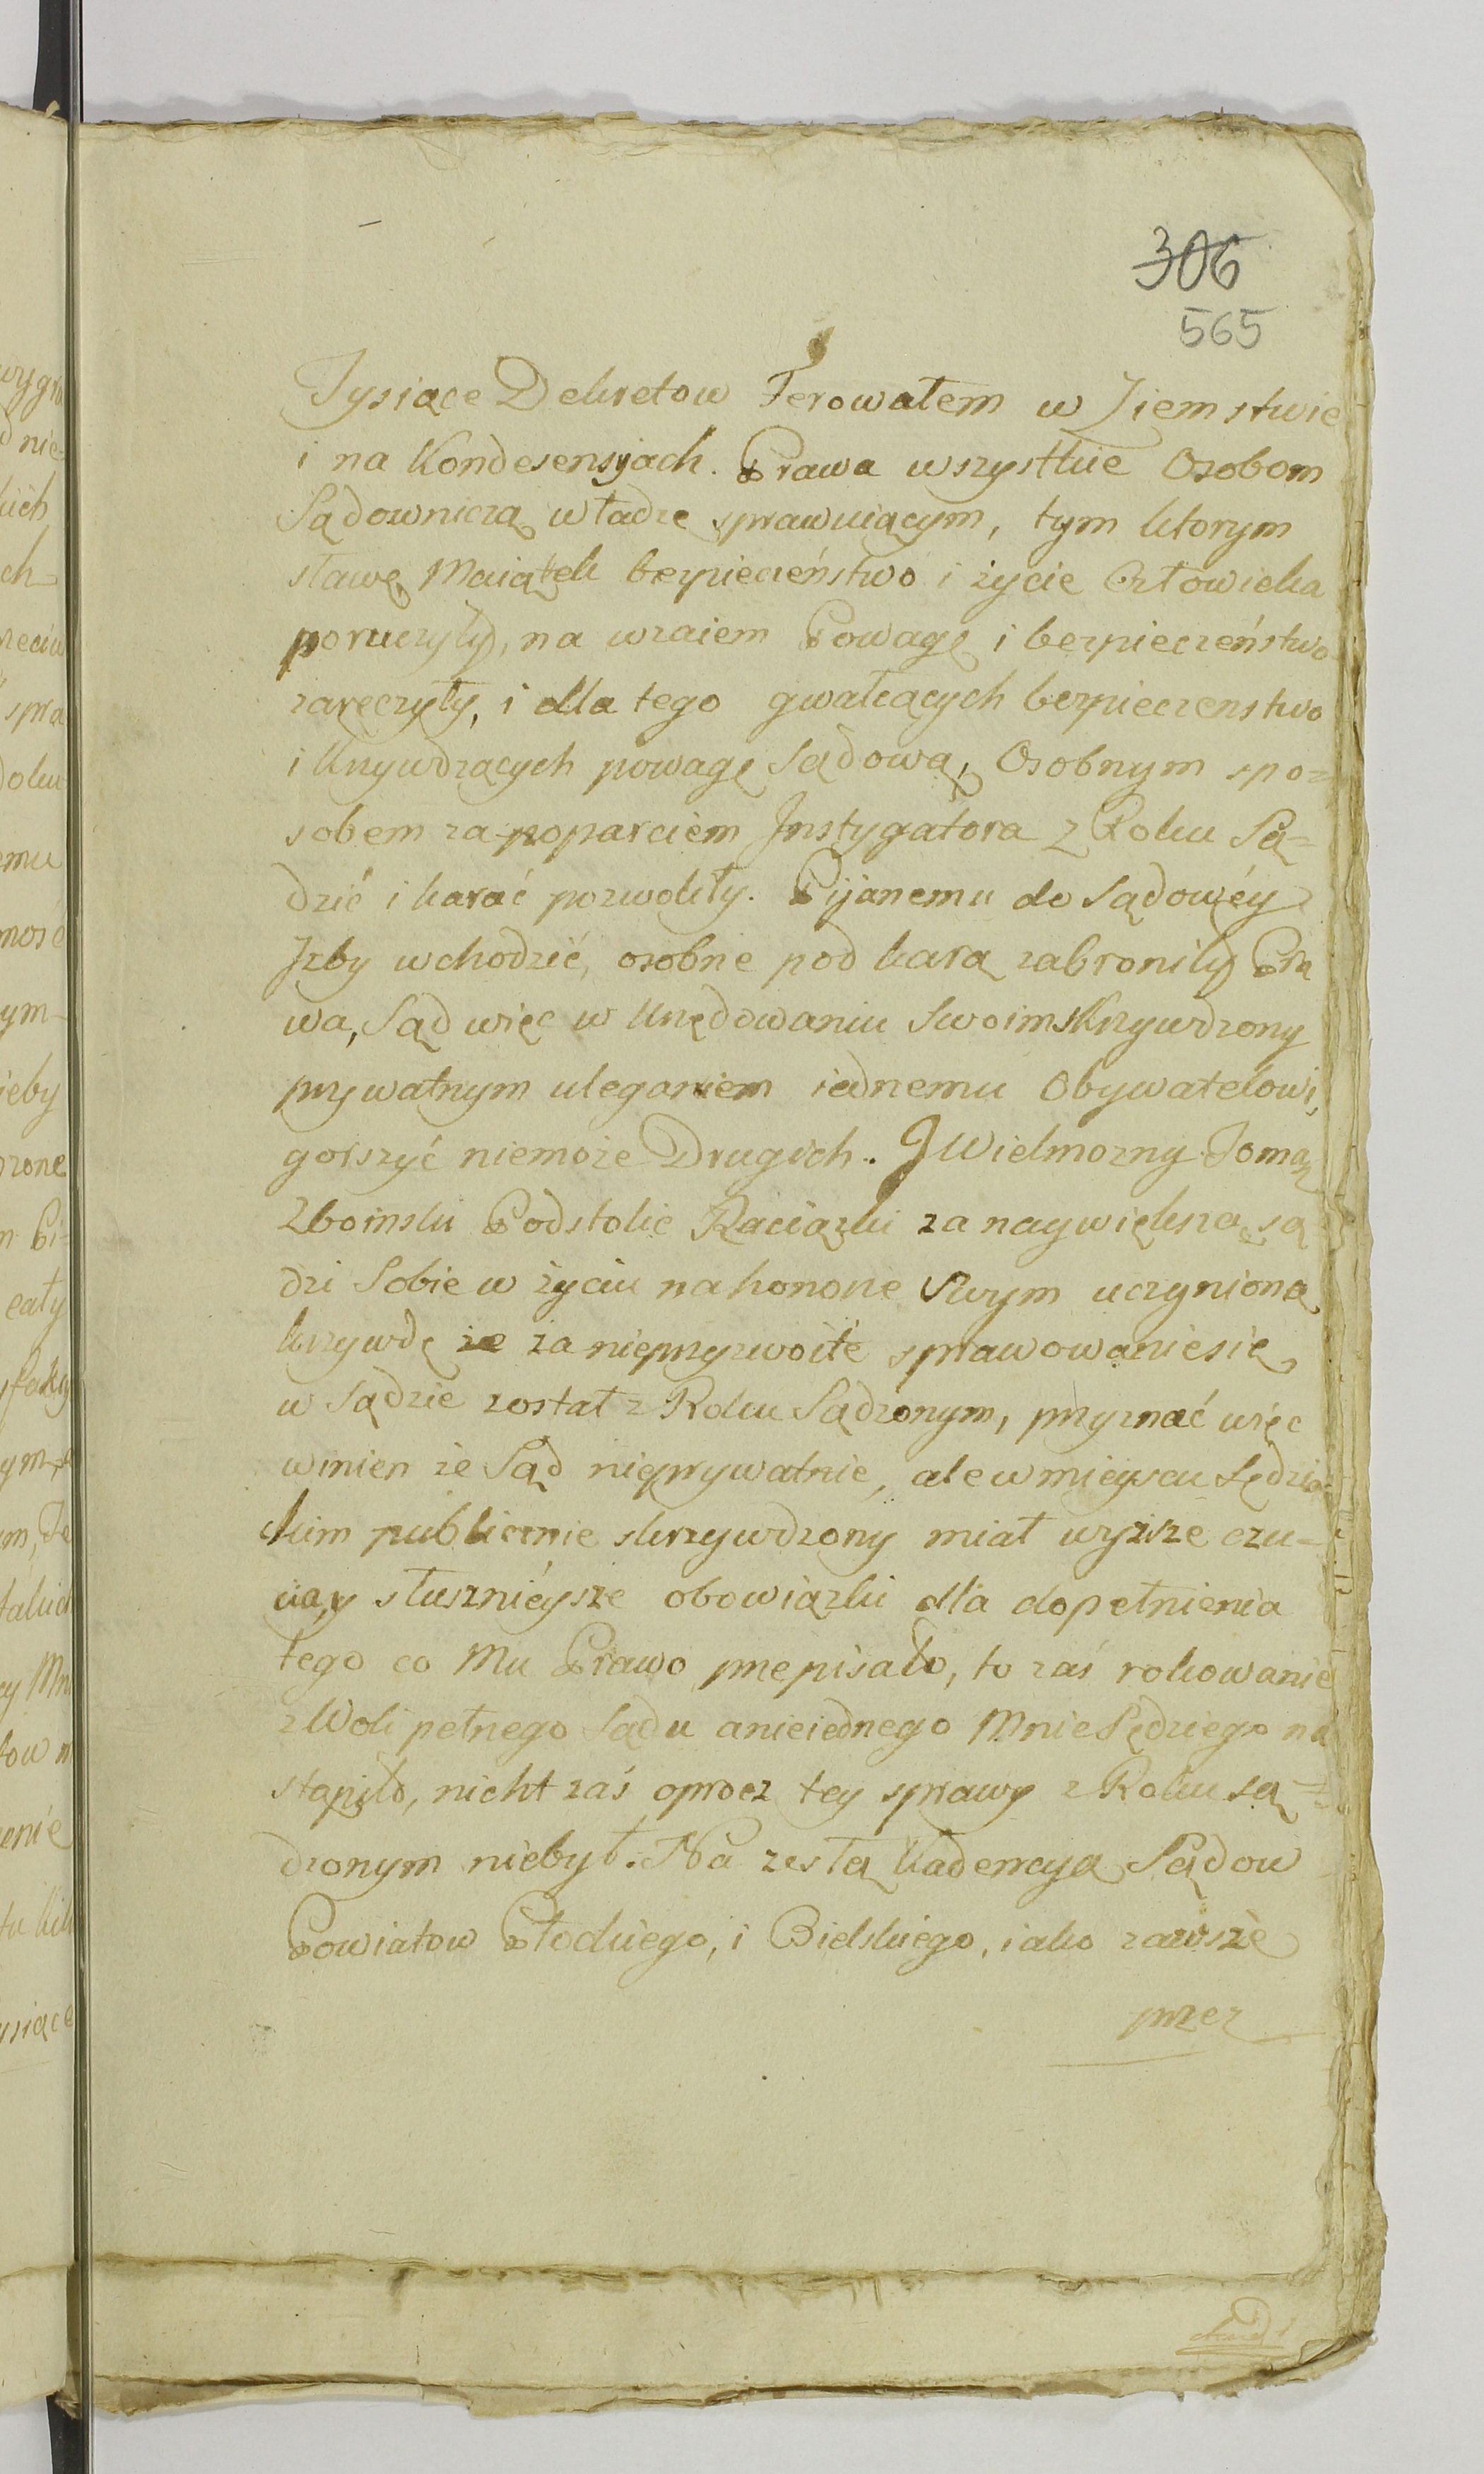 306
565
Tysiące Dekretow Ferowałem w Ziemstwie
i na Kondesensyach. Prawa wszystkie Osobom
Sądowniczą władze sprawuiącym, tym ktorym
sławę, Maiątek bezpieczeństwo i życie Człowieka
poruczyły, na wzaiem Powagę i bezpieczeństwo
zaręczyły, i dla tego gwałcących bezpieczenstwo
i krzywdzących powagę Sądową, Osobnym spo=
sobem za poparciem Instygatora z Roku Są=
dzić i karać pozwoliły. Pijanemu do Sądowéy
Izby wchodzić, osobne pod karą zabroniły Pra
wa, Sąd więc w Urzędowaniu Swoim skrzywdzony
prywatnym uleganiem iednemu Obywatelowi,
gorszyć niemoże Drugich. JWielmozny Tomasz
Zboinski Podstolic Raciązki za naywiększą są
dzi Sobie w życiu na honorze Swym uczynioną
krzywdę że za nieprzyzwoite sprawowaniesię
w Sądzie został z Roku Sądzonym, przyznać więc
winien że Sąd nieprywatnie, ale w mieyscu Sędzia
ckim publicznie skrzywdzony miał wyższe czu=
cia, y słusznieysze obowiązki dla dopełnienia
tego co Mu Prawo przepisało, to zaś rokowanie
z Woli pełnego Sądu anieiednego Mnie Sędziego na
stąpiło, nicht zaś oprocz tey sprawy z Roku są=
dzonym niebył. Na zeszłą Kadencyą Sądow
Powiatow Płockiego, i Bielskiego, iako zawsze
przez